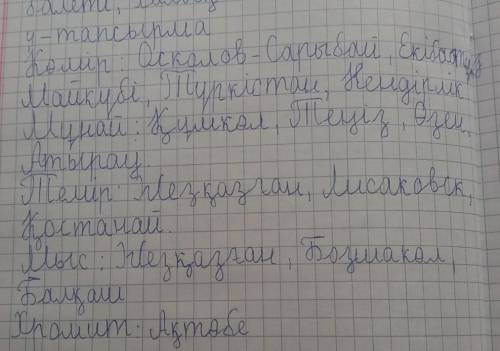 у-тапсырма
Көмір: Оскалов-Сарыбай, Екібастұз
Майкубі, Түркістан, Кендірлік
Мұнай: Құмкөл, Теңіз, Өзен,
Атырау.
Темір: Жезқазған, Лисаковск,
Қостанай.
Мыс: Жезқазған, Бозшакөл,
Балқаш
Хромит: Ақтөбе